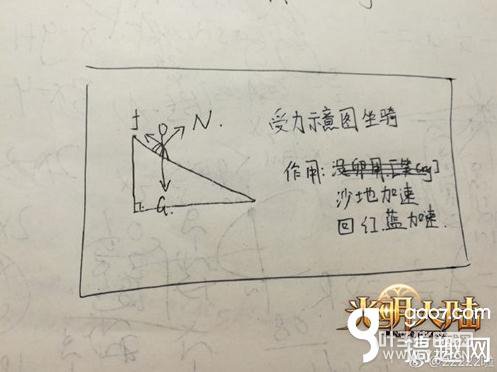 f N.
G.
受力示意图坐骑
作用:
沙地加速
回红.蓝加速.
光明大陆
gao7.com
搞趣网